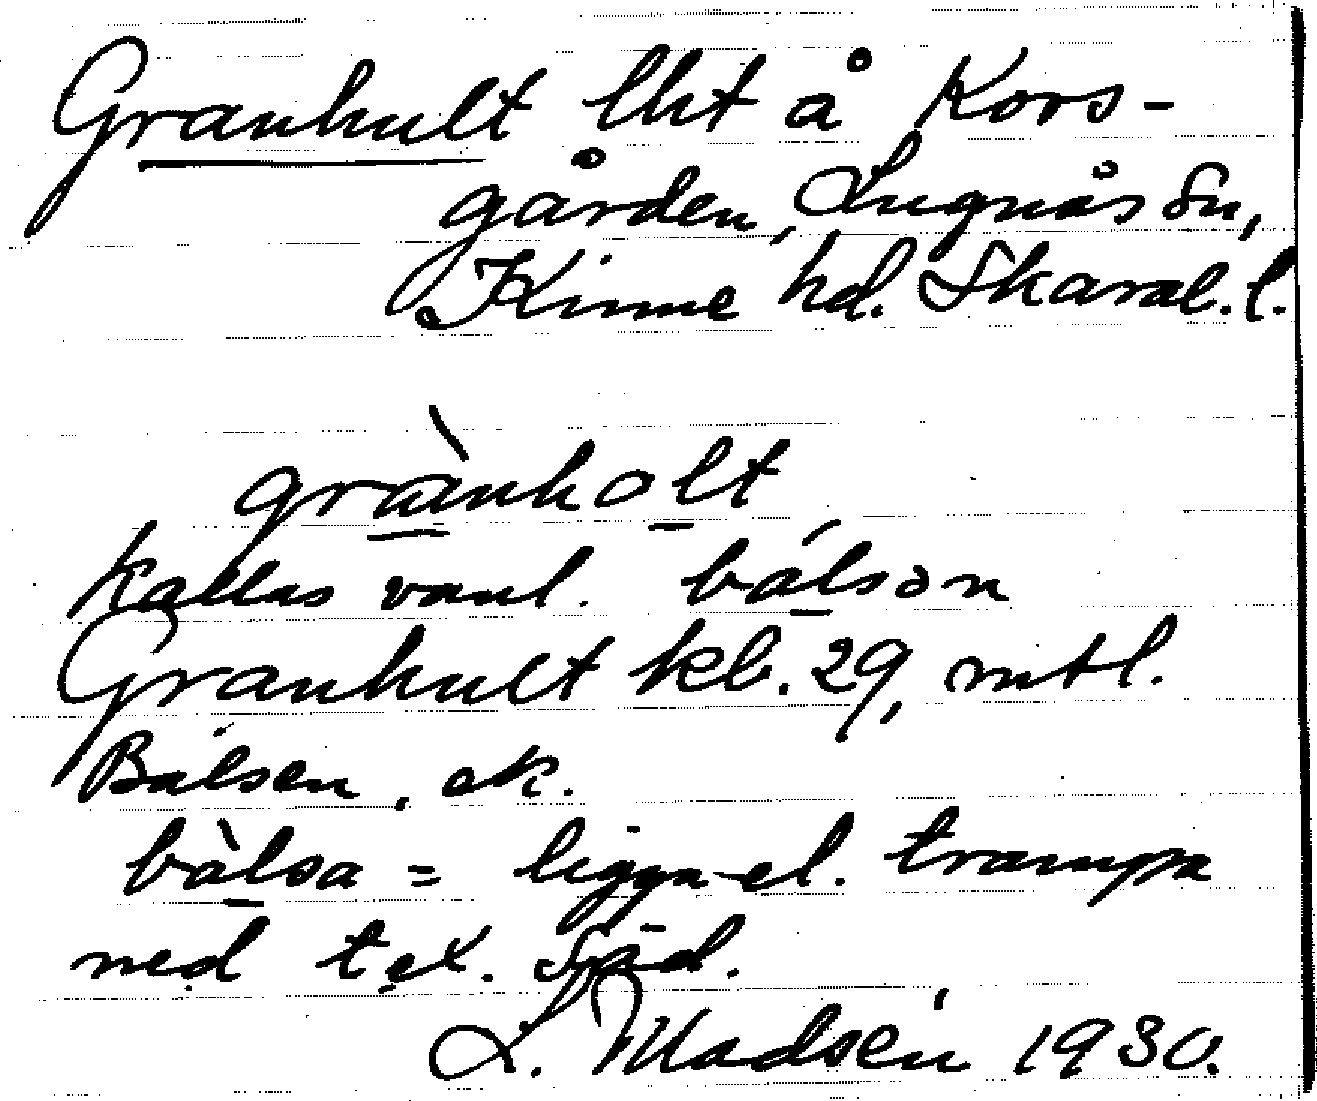 Granhult lht å Kors-
gården, Lugnås Sn,
Kinne hd. Skarab. l.
grànholt
Kallas vanl. bálsɔn
Granhult kb. 29, mtl.
Balsen, ek.
bàlsa = ligga el. trampa
ned t.ex. Säd.
L. Madsén 1930.